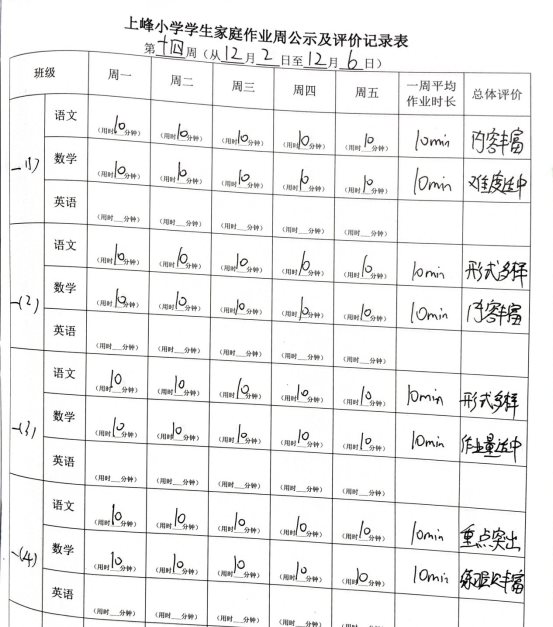 上峰小学学生家庭作业周公示及评价记录表
第十四周（从12月2日至12月6日）
班级 周一 周二 周三 周四 周五 一周平均作业时长 总体评价
一(1)
语文 （用时10分钟） （用时10分钟） （用时10分钟） （用时10分钟） （用时10分钟） 10min 内容丰富
数学 （用时10分钟） （用时10分钟） （用时10分钟） （用时10分钟） （用时10分钟） 10min 难度适中
英语 （用时__分钟） （用时__分钟） （用时__分钟） （用时__分钟） （用时__分钟）
一(2)
语文 （用时10分钟） （用时10分钟） （用时10分钟） （用时10分钟） （用时10分钟） 10min 形式多样
数学 （用时10分钟） （用时10分钟） （用时10分钟） （用时10分钟） （用时10分钟） 10min 内容丰富
英语 （用时__分钟） （用时__分钟） （用时__分钟） （用时__分钟） （用时__分钟）
一(3)
语文 （用时10分钟） （用时10分钟） （用时10分钟） （用时10分钟） （用时10分钟） 10min 形式多样
数学 （用时10分钟） （用时10分钟） （用时10分钟） （用时10分钟） （用时10分钟） 10min 作业量适中
英语 （用时__分钟） （用时__分钟） （用时__分钟） （用时__分钟） （用时__分钟）
一(4)
语文 （用时10分钟） （用时10分钟） （用时10分钟） （用时10分钟） （用时10分钟） 10min 重点突出
数学 （用时10分钟） （用时10分钟） （用时10分钟） （用时10分钟） （用时10分钟） 10min 丰富
英语 （用时__分钟） （用时__分钟） （用时__分钟） （用时__分钟） （用时__分钟）